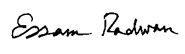 Essam Radwan